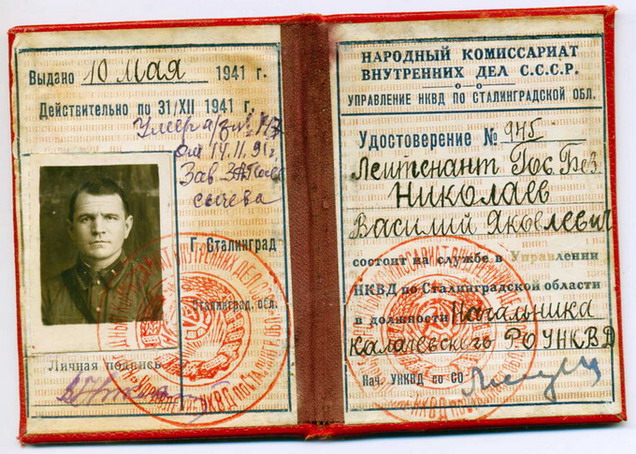 Выдано 10 Мая 1941 г.
Действительно по 31/XII 1941 г.
от 14.11.91г
Зав.
Г. Сталинград
Сталинград. обл.
Личная подпись
НАРОДНЫЙ КОМИССАРИАТ
ВНУТРЕННИХ ДЕЛ С.С.С.Р.
УПРАВЛЕНИЕ НКВД ПО СТАЛИНГРАДСКОЙ ОБЛ.
Удостоверение № 945
Лейтенант Гос. Без
Николаев
Василий Яковлевич
состоит на службе в Управлении
НКВД по Сталинградской области
в должности Начальника
Калачевского РО УНКВД
Нач. УНКВД со СО